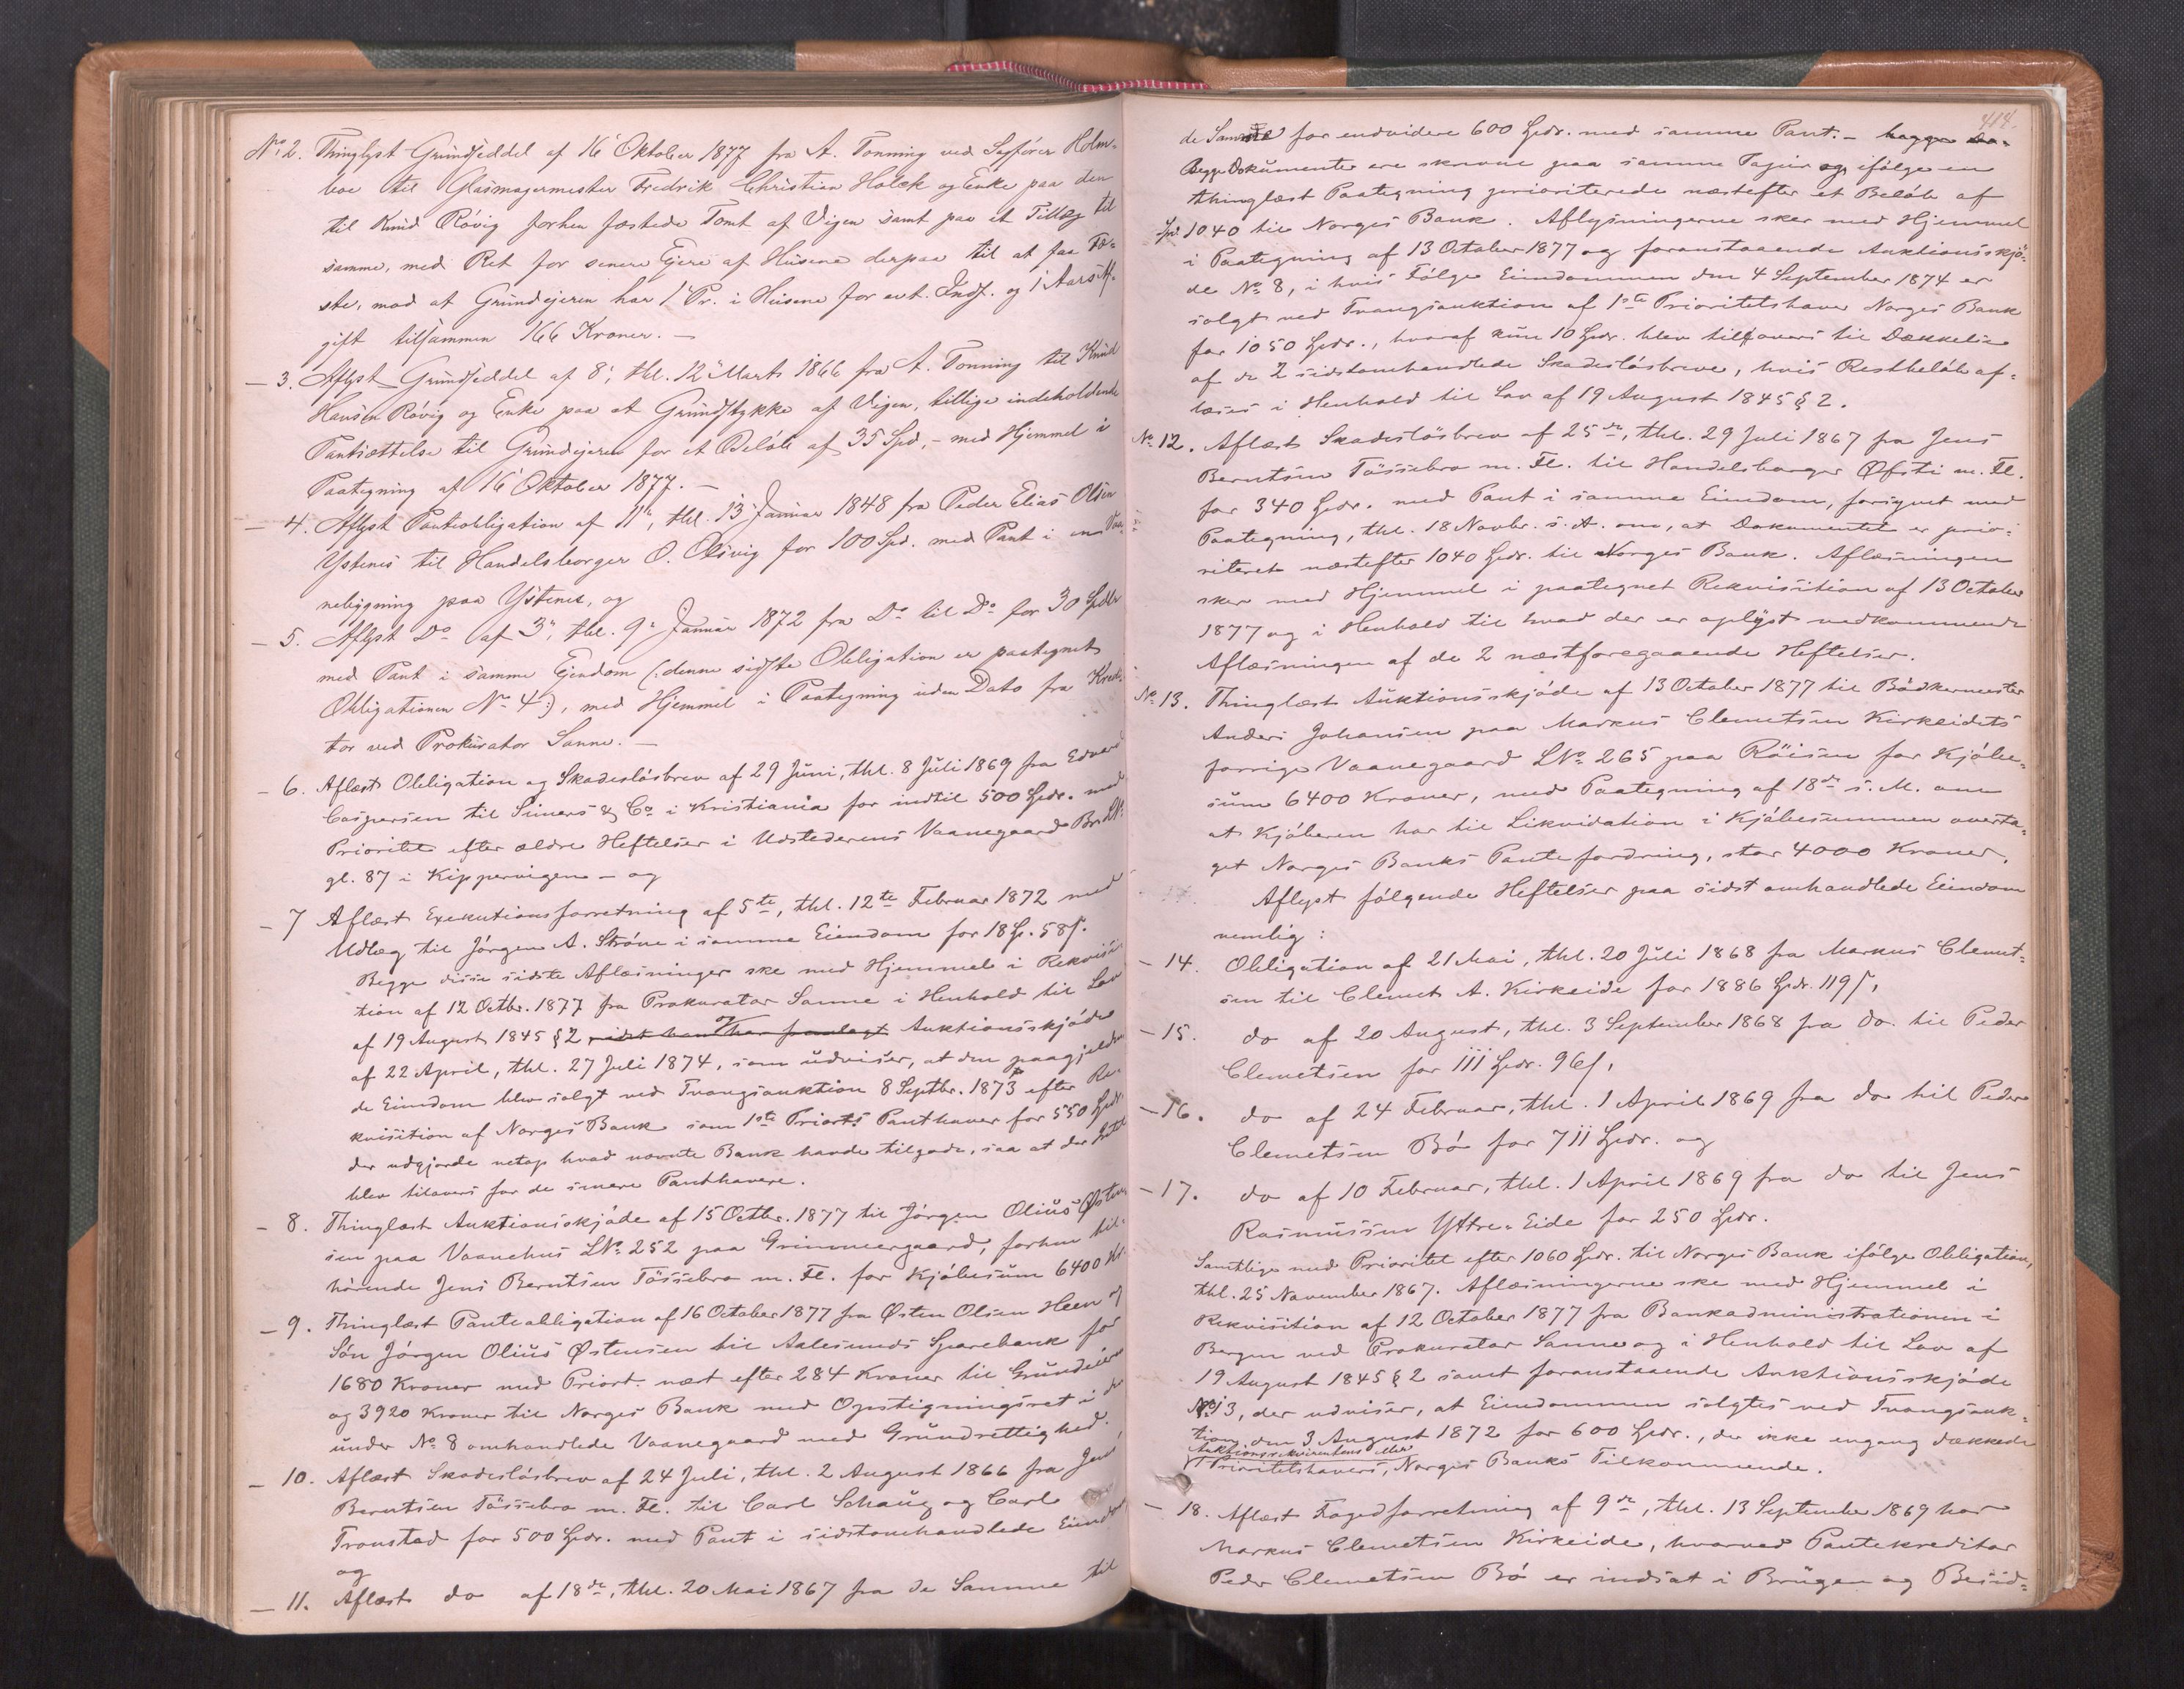 No 2. Thinglyst Grundseddel af 16 Oktober 1877 fra A. Tonning ved Sagfører Holm-
boe til Glasmagermester Fredrik Christian Holck og Enke paa den
til Knud Røvig forhen fæstede Tomt af Vigen samt paa et Tillæg til
samme, med Ret for senere Ejere af Husene derpaa til at faa Fæ-
ste, mod at Grundejeren har 1 Pr. i Husene for evt. Indf. og 1 Aars Af-
gift tilsammen 166 Kroner. —
— 3. Aflyst Grundseddel af 8, thl. 12 Marts 1866 fra A. Tonning til Knud
Hansen Røvig og Enke paa et Grundstykke af Vigen, tillige indeholdende
Pantsættelse til Grundejeren for et Beløb af 35 Spd, – med Hjemmel i
Paategning af 16 Oktober 1877. —
— 4. Aflyst Panteobligation af 11, thl. 13 Januar 1848 fra Peder Elias Olsen
Ystenes til Handelsborger O. Olsvig for 100 Spd. med Pant i en Vaa-
nebygning paa Ystenes, og
— 5. Aflyst Do af 3, thl. 9 Januar 1872 fra Do til Do for 30 Spdlr
med Pant i samme Ejendom (: denne sidste Obligation er paategnet
Obligationen No 4 :), med Hjemmel i Paategning uden Dato fra Kredi-
tor ved Prokurator Sanne. —
– 6. Aflæst Obligation og Skadesløsbrev af 29 Juni, thl. 8 Juli 1869 fra Edvard
Caspersen til Simers & Co i Kristiania for indtil 500 Spdr. med
Prioritet efter ældre Heftelser i Udstederens Vaanegaard Br. LNo
gl. 87 i Kippervigen – og
– 7 Aflæst Exekutionsforretning af 5te, thl. 12te Februar 1872 med
Udlæg til Jørgen A. Strøm i samme Eiendom for 18 Sp. 58 s.
Begge disse sidste Aflæsninger ske med Hjemmel i Rekvisi-
tion af 12 Octbr. 1877 fra Prokurator Sanne i Henhold til Lov
af 19 August 1845 § 2 og Auktionsskjøde
af 22 April, thl. 27 Juli 1874, som udviser, at den paagjælden-
de Eiendom blev solgt ved Tvangsauktion 8 Septbr. 1873 efter Re-
kvisition af Norges Bank som 1ste Priorts Panthaver for 550 Spdr
der udgjorde netop hvad nævnte Bank havde tilgode, saa at der Intet
blev tilovers for de senere Panthavere.
– 8. Thinglæst Auktionsskjøde af 15 Octbr. 1877 til Jørgen Olius Østen-
sen paa Vaanehus LNo 252 paa Grimmergaard, forhen til-
hørende Jens Berntsen Tøssebro m. Fl. for Kjøbesum 6400 Kr.
– 9. Thinglæst Panteobligation af 16 October 1877 fra Østen Olsen Heen og
Søn Jørgen Olius Østensen til Aalesunds Sparebank for
1680 Kroner med Priort. næst efter 284 Kroner til Grundeieren
og 3920 Kroner til Norges Bank med Opstigningsret i den
under No 8 omhandlede Vaanegaard med Grundrettighed.
– 10. Aflæst Skadesløsbrev af 24 Juli, thl. 2 August 1866 fra Jens
Berntsen Tøssebro m. Fl. til Carl Schaug og Carl
Tronstad for 500 Spdr. med Pant i sidstomhandlede Eiendom
og
– 11. Aflæst do af 18de, thl. 20 Mai 1867 fra de Samme til
414.
de Samme for endvidere 600 Spdr. med samme Pant. – begge Do-
Begge Dokumenter ere skrevne paa samme Papir og ifølge en
thinglæst Paategning prioriterede næstefter et Beløb af
Spd. 1040 til Norges Bank. Aflysningerne sker med Hjemmel
i Paategning af 13 October 1877 og foranstaaende Auktionsskjø-
de No 8, i hvis Følge Eiendommen den 4 September 1874 er
solgt ved Tvangsauktion af 1ste Prioritetshaver Norges Bank
for 1050 Spdr., hvoraf kun 10 Spdr. blev tilovers til Dækkelse
af de 2 sidstomhandlede Skadesløsbreve, hvis Restbeløb af-
læses i Henhold til Lov af 19 August 1845 § 2.
No 12. Aflæst Skadesløsbrev af 25de, thl. 29 Juli 1867 fra Jens
Berntsen Tøssebro m. Fl. til Handelsborger Øfsti m. Fl.
for 340 Spdr. med Pant i samme Eiendom, forsynet med
Paategning, thl. 18 Novbr. s. A. om, at Dokumentet er prio-
riteret næstefter 1040 Spdr. til Norges Bank. Aflæsningen
sker med Hjemmel i paategnet Rekvisition af 13 October
1877 og i Henhold til hvad der er oplyst vedkommende
Aflæsningen af de 2 næstforegaaende Heftelser.
No 13. Thinglæst Auktionsskjøde af 13 October 1877 til Bødkermester
Anders Johansen paa Markus Clemetsen Kirkeidets
forrige Vaanegaard LNo 265 paa Røisen for Kjøbe-
sum 6400 Kroner, med Paategning af 18de s. M. om
at Kjøberen har til Likvidation i Kjøbesummen overta-
get Norges Banks Pantefordring, stor 4000 Kroner.
Aflyst følgende Heftelser paa sidst omhandlede Eiendom
nemlig:
– 14. Obligation af 21 Mai, thl. 20 Juli 1868 fra Markus Clemet-
sen til Clemet A. Kirkeide for 1886 Spdr. 119 s,
– 15. do af 20 August, thl. 3 September 1868 fra do. til Peder
Clemetsen for 111 Spdr. 96 s,
– 16. do af 24 Februar, thl. 1 April 1869 fra do til Peder
Clemetsen Bø for 711 Spdr. og
– 17. do af 10 Februar, thl. 1 April 1869 fra do til Jens
Rasmussen Yttre-Eide for 250 Spdr.
Samtlige med Prioritet efter 1060 Spdr. til Norges Bank ifølge Obligation,
thl. 25 November 1867. Aflæsningerne ske med Hjemmel i
Rekvisition af 12 October 1877 fra Bankadministrationen i
Bergen ved Prokurator Sanne og i Henhold til Lov af
19 August 1845 § 2 samt foranstaaende Auktionsskjøde
No 13, der udviser, at Eiendommen solgtes ved Tvangsauk-
tion den 3 August 1872 for 600 Spdr., der ikke engang dækkede
Auktionsrekvirentens eller
1 Prioritetshavers, Norges Banks Tilkommende.
– 18. Aflæst Fogedforretning af 9de, thl. 13 September 1869 hos
Markus Clemetsen Kirkeide, hvorved Pantekreditor
Peder Clemetsen Bø er indsat i Brugen og Besid-